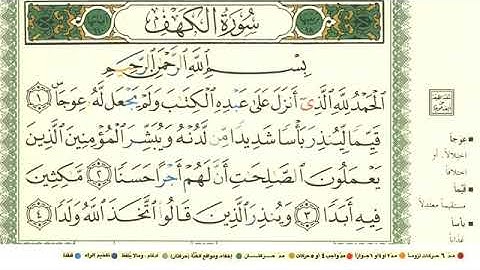 سُورَةُ الْكَهْفِ
بِسْمِ اللَّهِ الرَّحْمَٰنِ الرَّحِيمِ
ٱلْحَمْدُ لِلَّهِ ٱلَّذِىٓ أَنزَلَ عَلَىٰ عَبْدِهِ ٱلْكِتَٰبَ وَلَمْ يَجْعَل لَّهُۥ عِوَجَاۜ ١
قَيِّمًا لِّيُنذِرَ بَأْسًا شَدِيدًا مِّن لَّدُنْهُ وَيُبَشِّرَ ٱلْمُؤْمِنِينَ ٱلَّذِينَ
يَعْمَلُونَ ٱلصَّٰلِحَٰتِ أَنَّ لَهُمْ أَجْرًا حَسَنًا ٢ مَّٰكِثِينَ
فِيهِ أَبَدًا ٣ وَيُنذِرَ ٱلَّذِينَ قَالُوا۟ ٱتَّخَذَ ٱللَّهُ وَلَدًا ٤
عوجا
اختلالا، أو
اختلافا
قيما
مستقيما معتدلا
بأسا
عذابا
مد ٦ حركات لزوما مد ٢ او ٤ او ٦ جوازا مد واجب ٤ او ٥ حركات مد حركتان إخفاء، ومواقع الغنة (حركتان) ادغام، ومالا يلفظ تفخيم الراء قلقلة